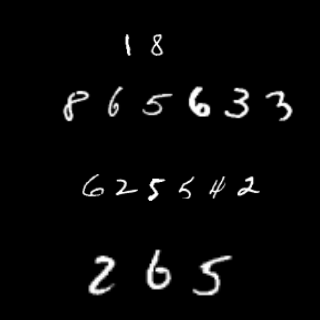 18
865633
625542
265